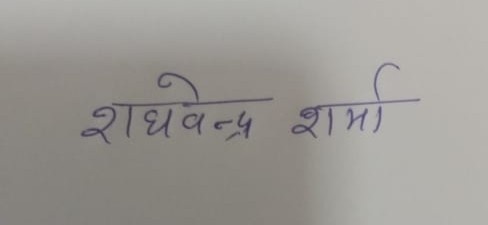 राघवेन्द्र शर्मा